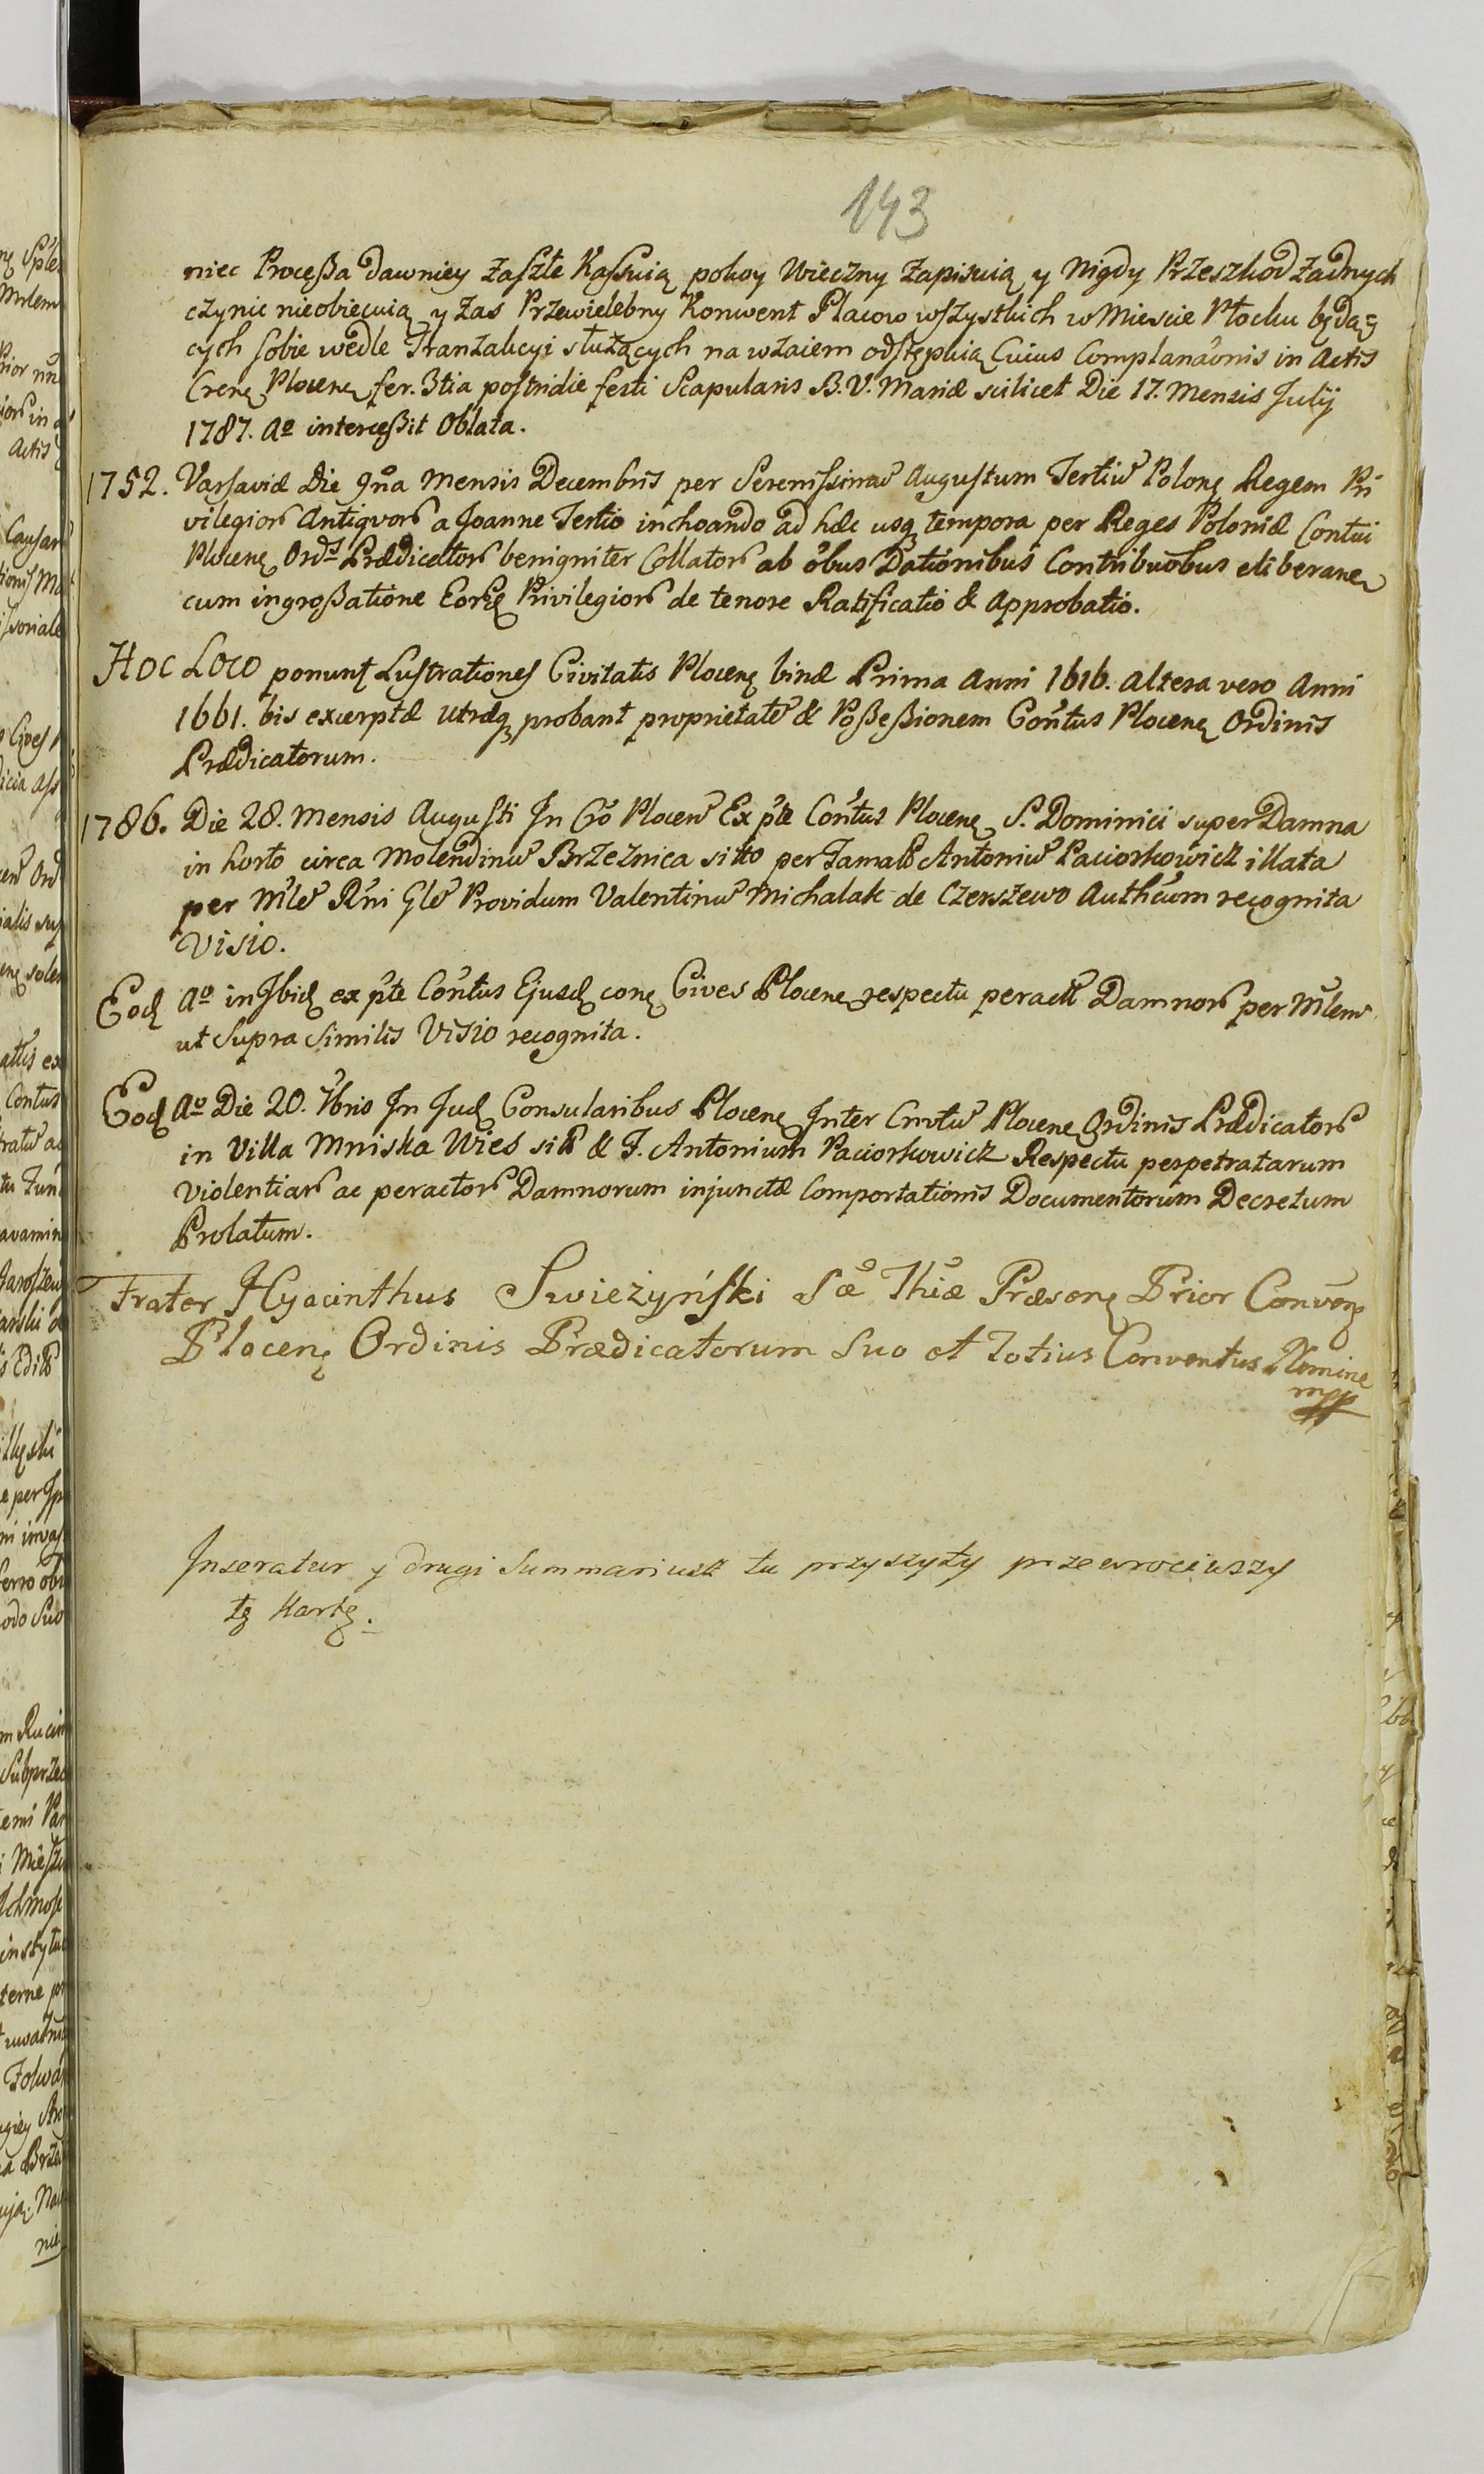 143
niec Processa dawniey zaszłe Kassuią pokoy Wieczny zapisuią y Nigdy Przeszkod żadnych
czynic nieobiecuią y zas Przewielebny Konwent Placow wszystkich w Miescie Płocku będą=
cych sobie wedle Tranzakcyi służących na wzaiem odstępuią Cuius Complanaōnis in Actis
Crenę Plocenę fer. 3tia postridie festi Scapularis B. V. Mariæ scilicet Die 17. Mensis Julij
1787. Aº intercessit Oblata.
1752. Varsaviæ Die 9na Mensis Decembris per Serenissimū Augustum Tertiū Polonę Regem Pri
vilegior Antiquor a Joanne Tertio inchoando ad hæc usq tempora per Reges Poloniæ Contui
Plocenę Ords Prædicator benigniter Collator ab ōbus Dationibus Contribuōbus eliberanę
cum ingrossatione Eorḍ Privilegior de tenore Ratificatio & Approbatio.
Hoc Loco ponunt Lustrationes Civitatis Plocenę binæ Prima Anni 1616. Altera vero Anni
1661. bis excerptæ utræq probant proprietatē & Possessionem Contus Plocenę Ordinis
Prædicatorum.
1786. Die 28. Mensis Augusti In Cō Plocen Ex pte Contus Plocenę S. Dominici super Damna
in horto circa Molendinū Brzeznica sitto per Famat Antoniū Paciorkowicz illata
per Mle Rni Gle Providum Valentinū Michalak de Czerszewo Authcum recognita
Visio.
Eod Aº in Ibid ex pte Contus Ejusd conę Cives Plocenę respectu peract Damnor per Mlem
ut Supra Similis Visio recognita.
Eod Aº Die 20. 7bris In Jud Consularibus Plocenę Inter Cnvtū Plocenę Ordinis Prædicator
in Villa Mniska Wies sit & F. Antonium Paciorkowicz Respectu perpetratarum
Violentiar ac peractor Damnorum injunctæ Comportationis Documentorum Decretum
Prolatum.
Frater Hyacinthus Swieżyński Sæ Thiæ Præsenę Prior Convenę
Plocenę Ordinis Prædicatorum Suo et Totius Conventus Nomine
mpp
Inseratur y drugi Summariusz tu przyszyty przewrociwszy
tę Kartę.